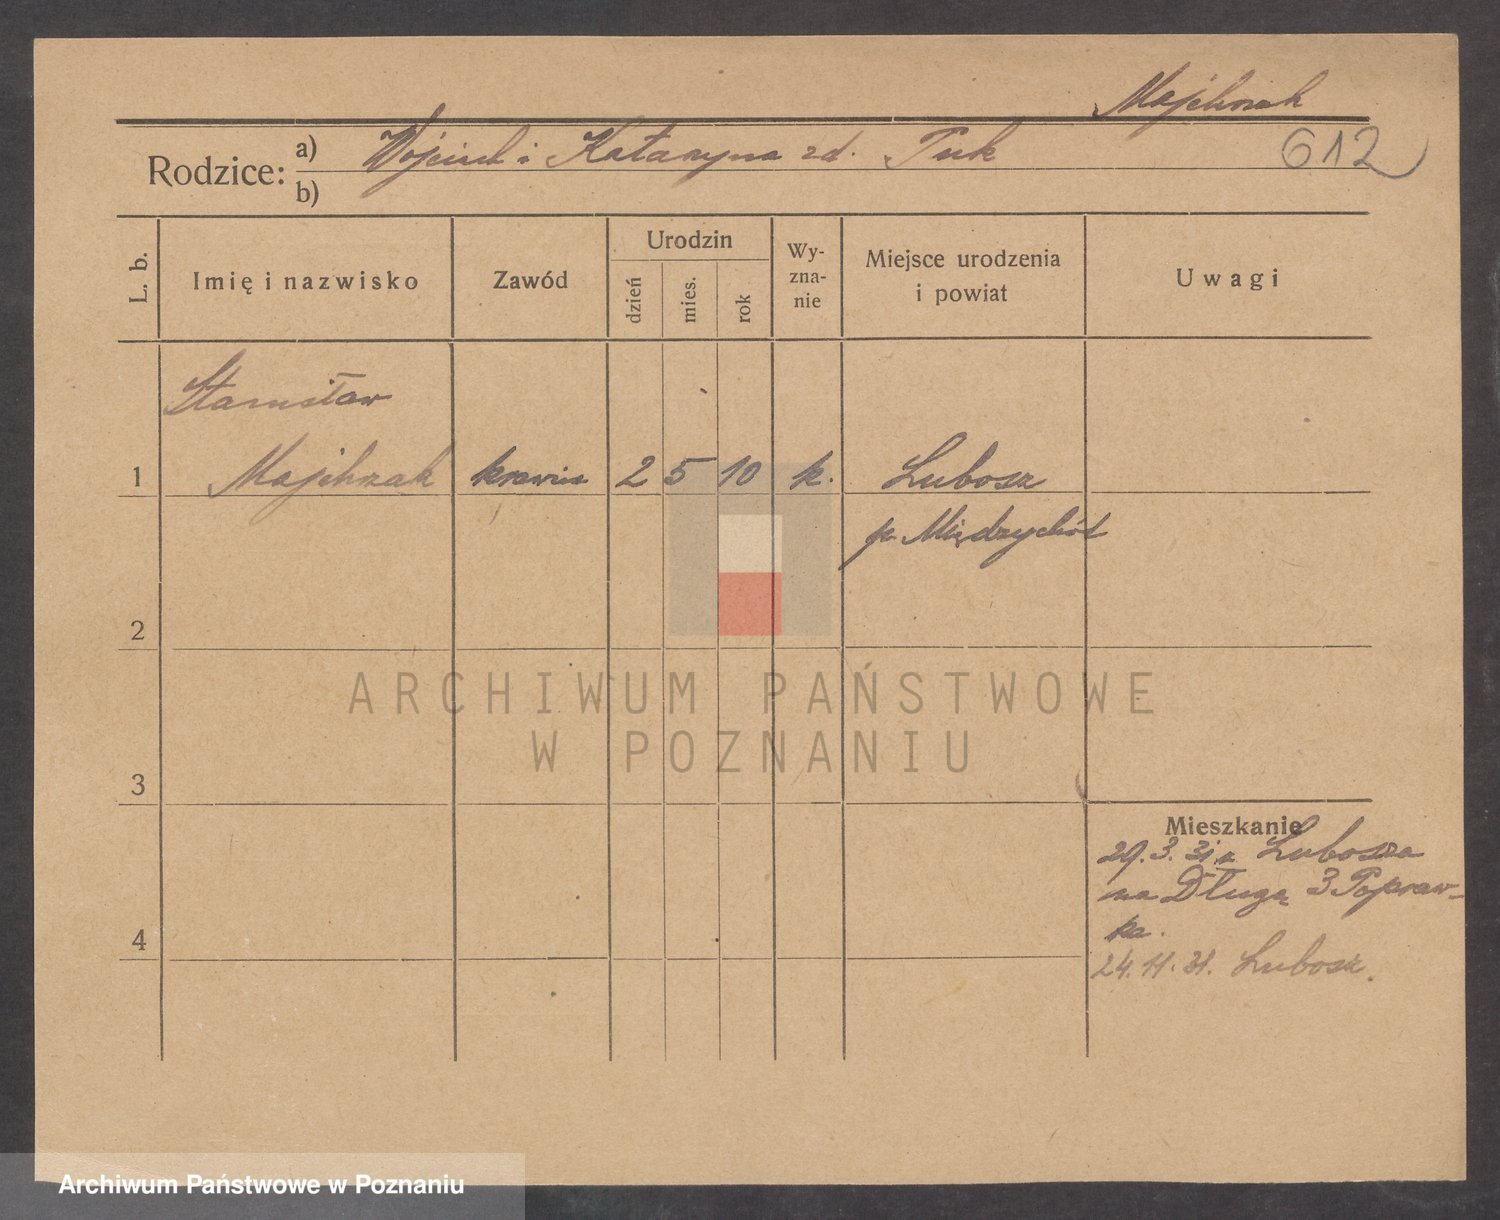 Majchrzak
612
Rodzice: a) Wojciech i Katarzyna zd. Puk
b)
L. b. Imię i nazwisko Zawód Urodzin dzień mies. rok Wy-zna-nie Miejsce urodzenia i powiat Uwagi
Stanisław
1 Majchrzak krawiec 2 5 10 k. Lubosz
p. Międzychód
2
ARCHIWUM PAŃSTWOWE
W POZNANIU
3
Mieszkanie
29.3.31 z Lubosza
na Długą 3 Popraw-
ka.
4
24.11.31. Lubosz.
Archiwum Państwowe w Poznaniu